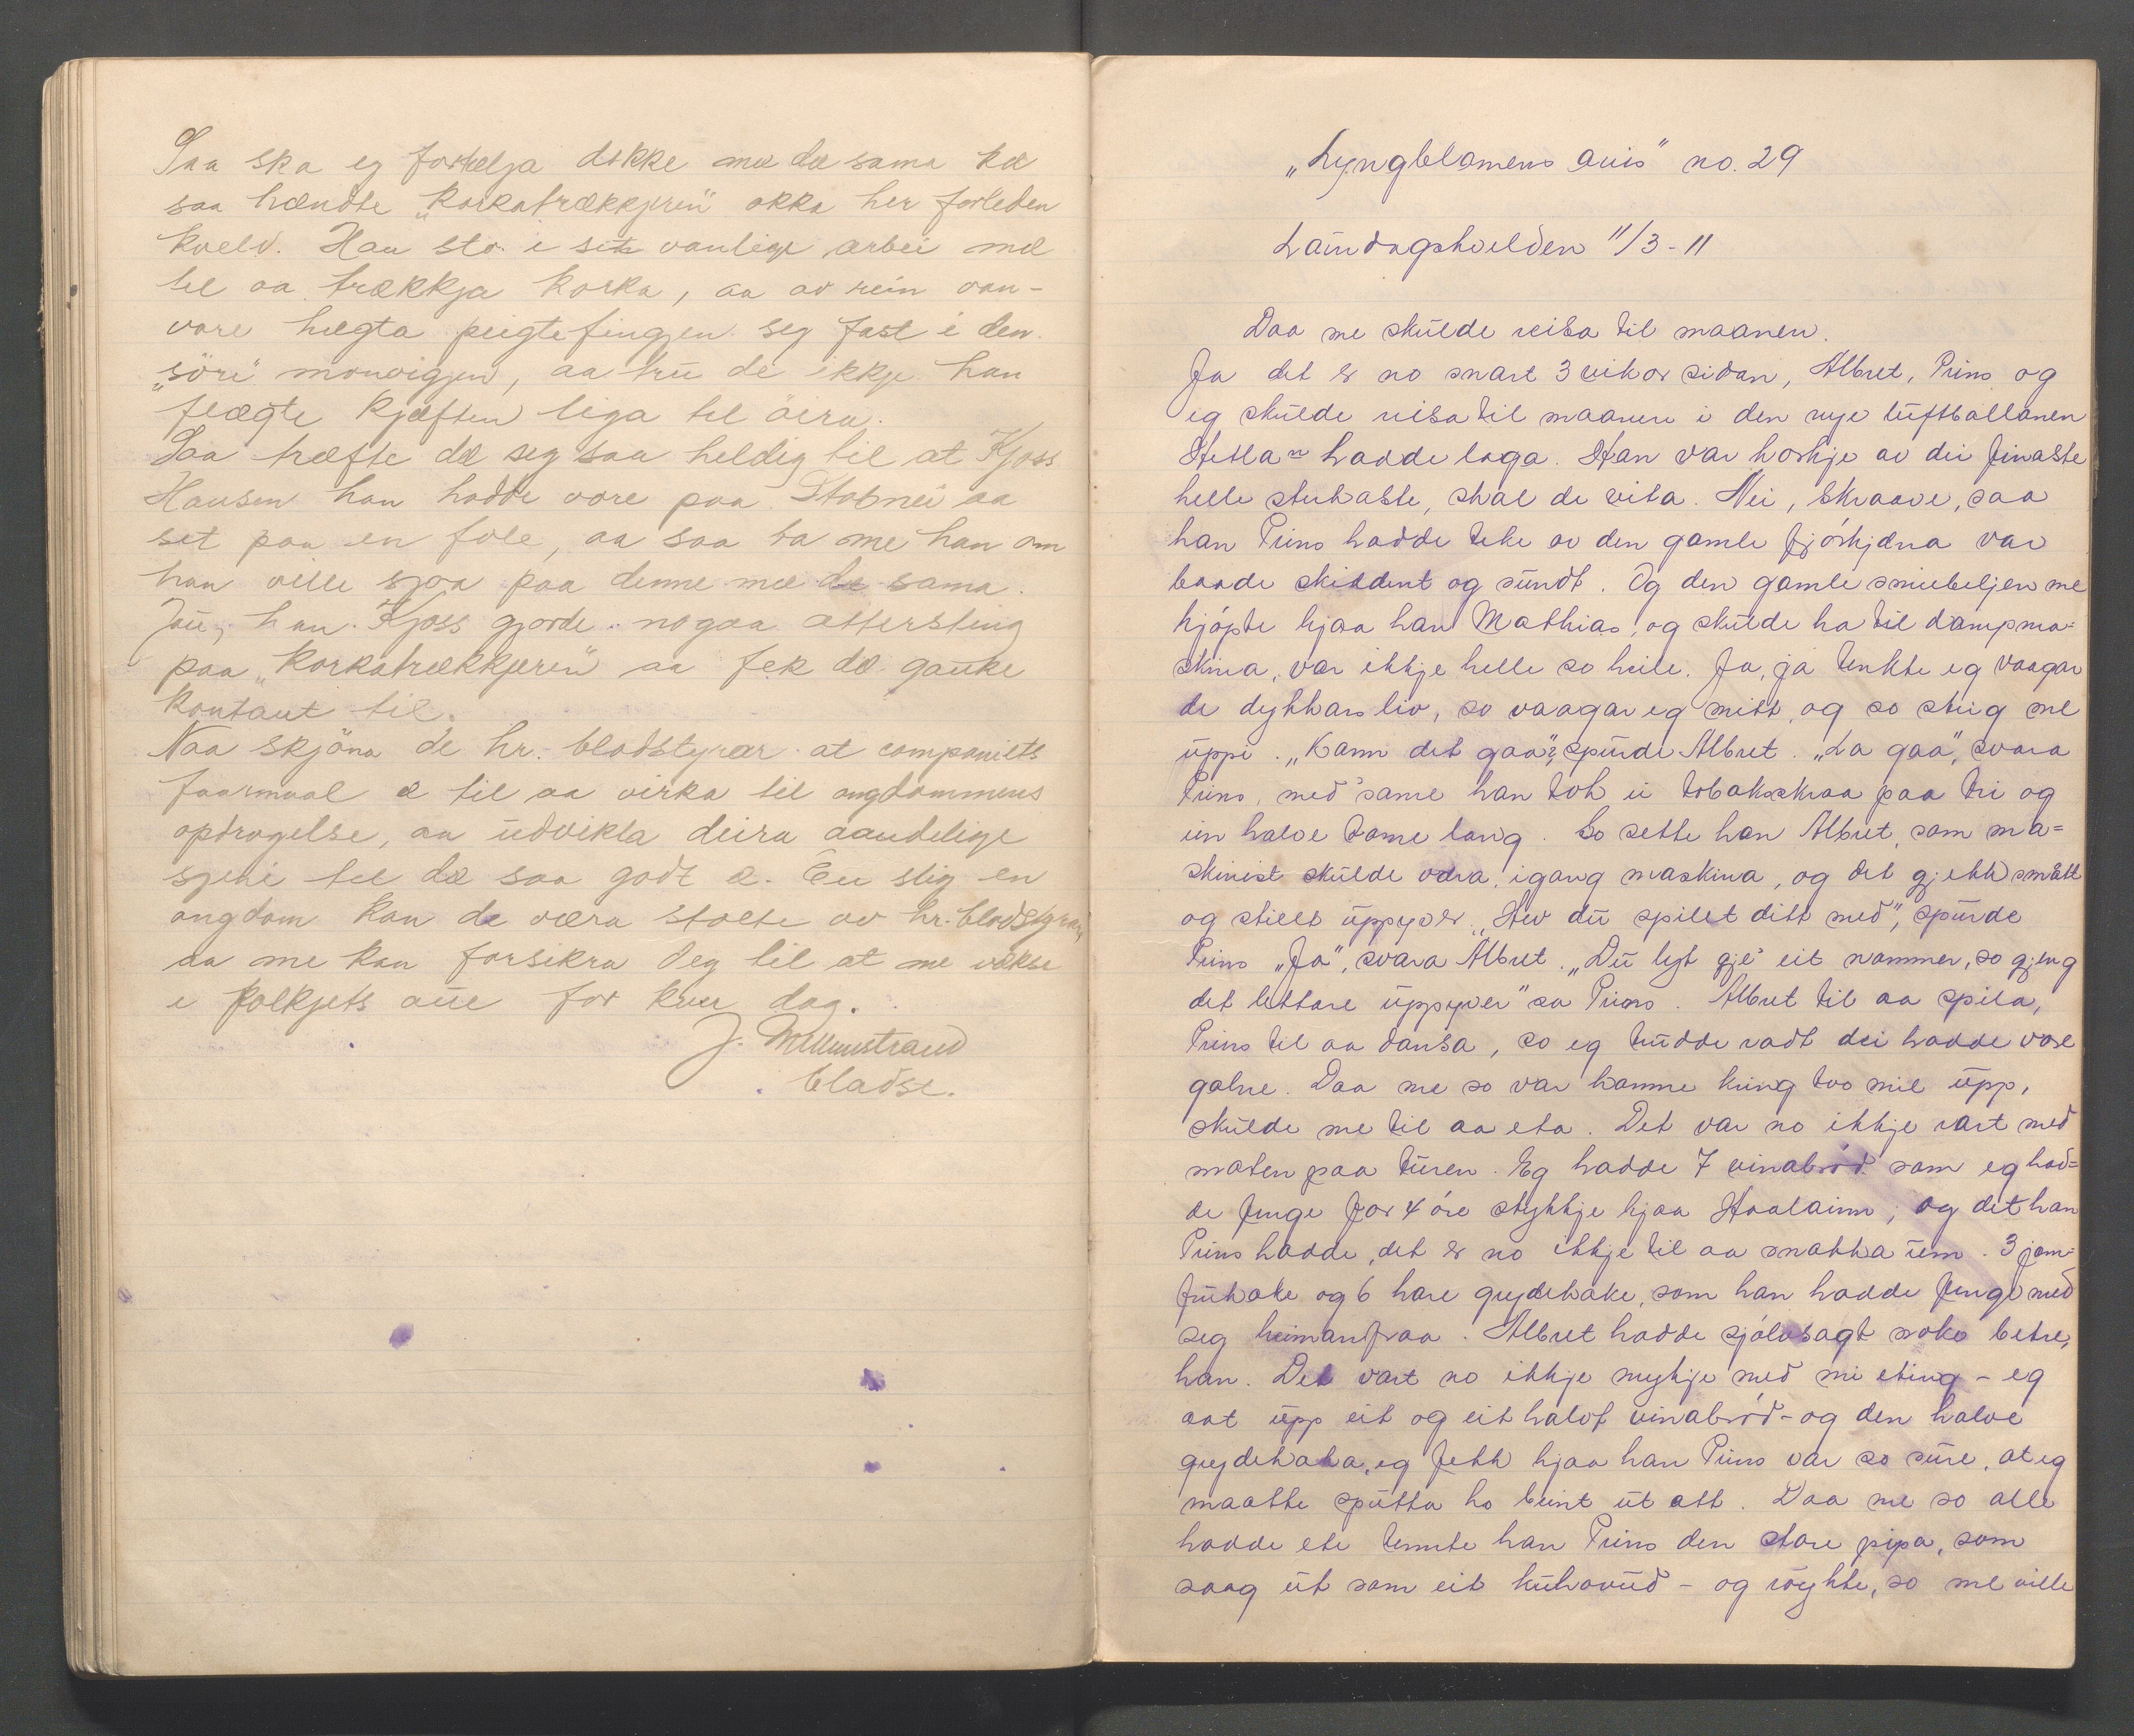 Saa ska eg fortælja dokke mæ dæ sama kæ
saa hændte „Korkatrækkjeren" okka her forleden
kveld. Han sto i sit vanlige arbei mæ
til aa trækkja korka, aa av rein van-
vare hægta peigtefingjen seg fast i den
„söre" monvigjen, aa tru de ikkje han
flægte kjæften liga til öira.
Saa træfte dæ seg saa heldig til at Kjoss
Hansen han hadde vore paa Stabnei aa
set paa en fole, aa saa ba me han om
han ville sjaa paa denne mæ dæ sama.
Jau, han Kjoss gjorde nogaa attersting
paa „Korkatrækkjeren" aa fek dæ gauke
kontant til.
Naa skjöna de hr. bladstyrar at companiets
faarmaal æ til aa virka til ungdommens
opdragelse, aa udvikla deira aandelige
sjene til dæ saa godt æ. Eu slig en
ungdom kan de væra stolte av hr. bladstyrar,
aa me kan forsikra deg til at me vækse
i folkjets aue for kver dag.
J. Mellumstrand
bladst.
„Lyngblomens avis" no. 29
Laurdagskvelden 11/3-11
Daa me skulde reisa til maanen.
Ja det er no snart 3 vikor sidan, Albret, Prins og
eg skulde reisa til maanen i den nye luftballonen
Hetlan hadde laga. Han var korkje av dei finaste
helle sterkaste, skal de vita. Nei, skraave, saa
han Prins hadde teke av den gamle fjóskjdna var
baade skiddent og sundt. Og den gamle smiebeljen me
kjópte hjaa han Mathias, og skulde ha til dampma-
skina, var ikkje helle so heile. Ja, ja tenkte eg vaagar
de dykkars liv, so vaagar eg mitt, og so steig me
uppi. „Kann det gaa"? spurde Albret. „La gaa", svara
Prins, med same han tok ei tobaksskraa paa tri og
ein halve tome lang. So sette han Albret, som ma-
skinist skulde vdra, igang maskina, og det gjekk smått
og stillt uppyver. „Hev du spilet ditt med", spurde
Prins „Ja", svara Albret. „Du lyt gje eit nammer, so gjeng
det lettare uppyver" sa Prins. Albret til aa spila,
Prins til aa dansa, so eg trudde radt dei hadde vore
galne. Daa me so var komne kring two mil upp,
skulde me til aa eta. Det var no ikkje rart med
maten paa turen. Eg hadde 7 vinabród som eg had-
de fenge for 4 óre stykkje hjaa Haalainn, og det han
Prins hadde, det er no ikkje til aa snakka um. 3 jom-
frukake og 6 hare grydekake, som han hadde fenge med
seg heimanfraa. Albret hadde sjólvsagt noko betre,
han. Det vart no ikkje mykje med mi eting - eg
aat upp eit og eit halvt vinabród - og den halve
grydekaka, eg fekk hjaa han Prins var so sure, at eg
maatte sputta ho beint ut att. Daa me so alle
hadde ete tennte han Prins den store pipa, som
saag ut som eit kuhovud - og róykte, so me ville